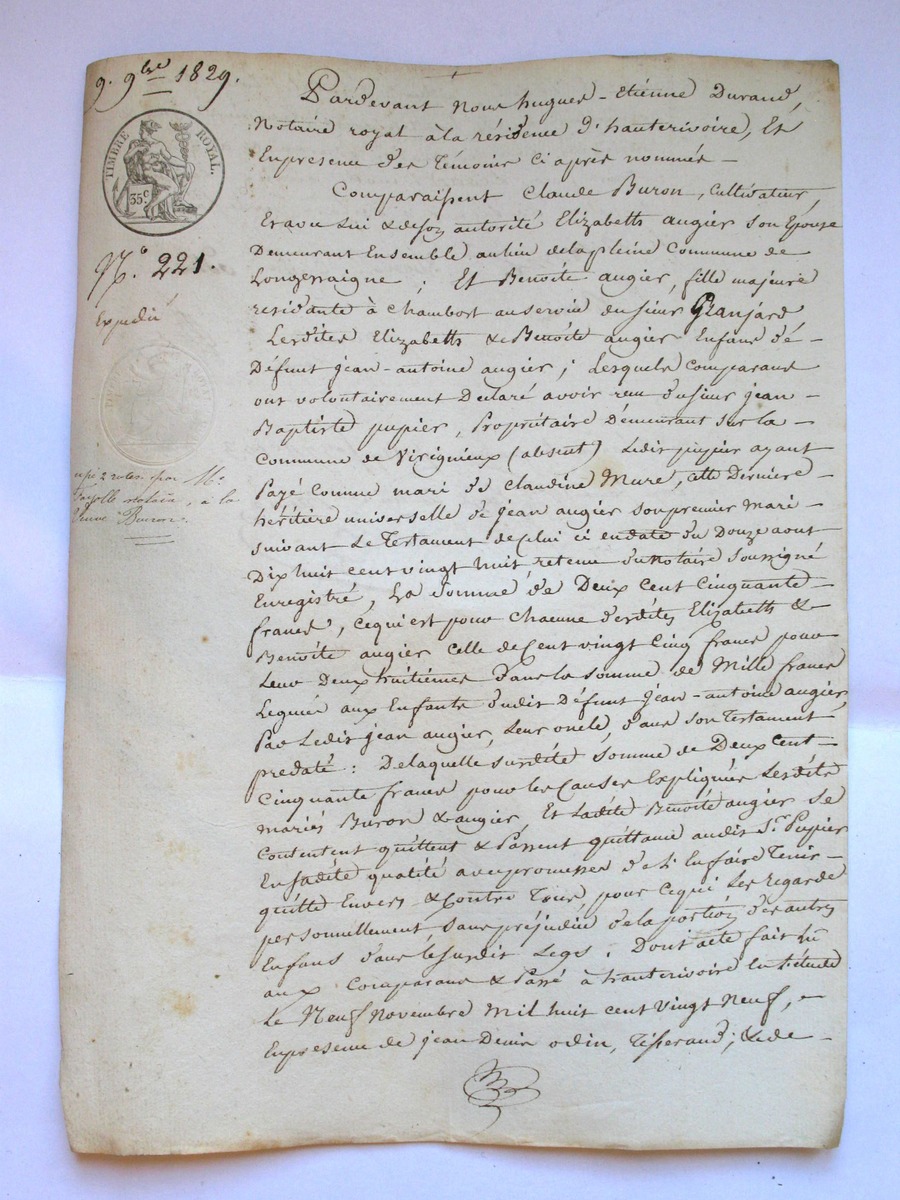 9. 9bre 1829.
TIMBRE ROYAL.
35c
No. 221.
Expédié
expé 2 rotes par Me
notaire, à la
veuve Buron.
Pardevant Nous hugues-Etienne Durand,
Notaire royal à la résidence d'hauterivoire, Et
En presence des témoins ci après nommés –
Comparaissent Claude Buron, Cultivateur,
Et avec lui & de son autorité Elizabeth augier son Epouse
Demeurant Ensemble au lieu de la pleine Commune de
Longessaigne ; Et Benoîte augier, fille majeure
residante à Chambost au service du sieur Granjard
Lesdites Elizabeth & Benoîte augier Enfans de –
Défunt jean-antoine augier ; Lesquels Comparans
ont volontairement Déclaré avoir reçu du sieur jean –
Baptiste pupier, Propriétaire Demeurant sur la –
Commune de Virignieux (absent) Ledit pupier ayant
Payé Comme mari de Claudine Mure, cette Derniere
héritière universelle de jean augier son premier mari –
suivant Le Testament de celui ci en date du Douze aout
Dix huit cent vingt huit retenu du Notaire soussigné
Enregistré, La somme de Deux cent Cinquante –
francs, ce qui est pour chacune desdites Elizabeth &
Benoîte augier celle de Cent vingt Cinq francs pour
Leur Deux huitièmes dans la somme de Mille francs
Leguée aux Enfants dudit Défunt jean-antoine augier,
Par Ledit jean augier, Leur oncle, dans son Testament
predaté : De laquelle susdite somme de Deux Cent –
Cinquante francs pour les Causes Expliquées Lesdits
mariés Buron & augier Et Ladite Benoîte augier se
Contentent quittent & Passent quittance audit Sr. Pupier
En sadite qualité avec promesse de L'En faire Tenir –
quitte Envers & Contre Tous, pour ce qui Les regarde
personnellement sans préjudice de la portion des autres
Enfans dans le susdit Legs. Dont acte fait lu
aux Comparans & Passé à hauterivoire En l'étude
Le Neuf Novembre Mil huit cent Vingt Neuf, –
En presence de jean Denis odin, Tisserand ; & de –